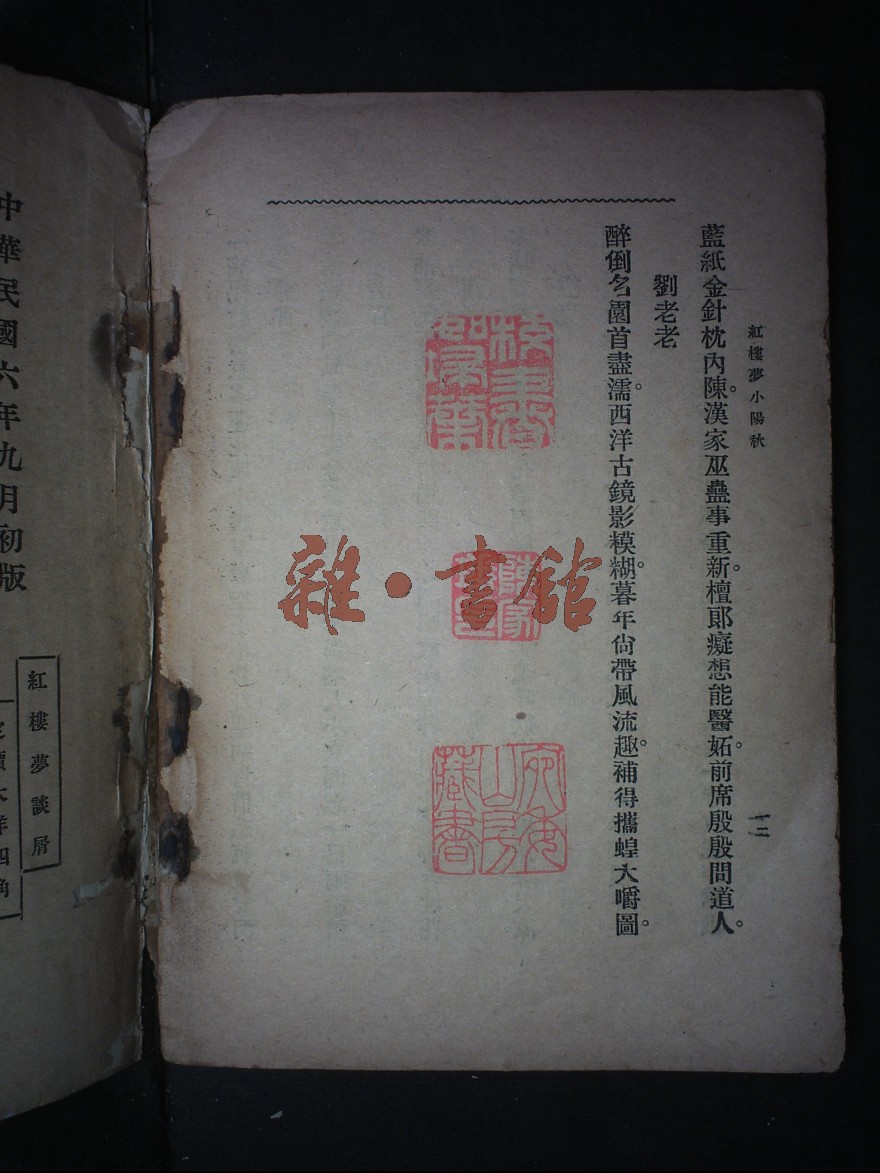 紅樓夢小陽秋
十二
藍紙金針枕內陳。漢家巫蠱事重新。檀郞癡想能醫妬。前席殷殷問道人。
劉老老
醉倒名園首盡濡。西洋古鏡影模糊。暮年尙帶風流趣。補得攜蝗大嚼圖。
宛委山房藏書
雜·書館
中華民國六年九月初版
紅樓夢談屑
定價大洋四角